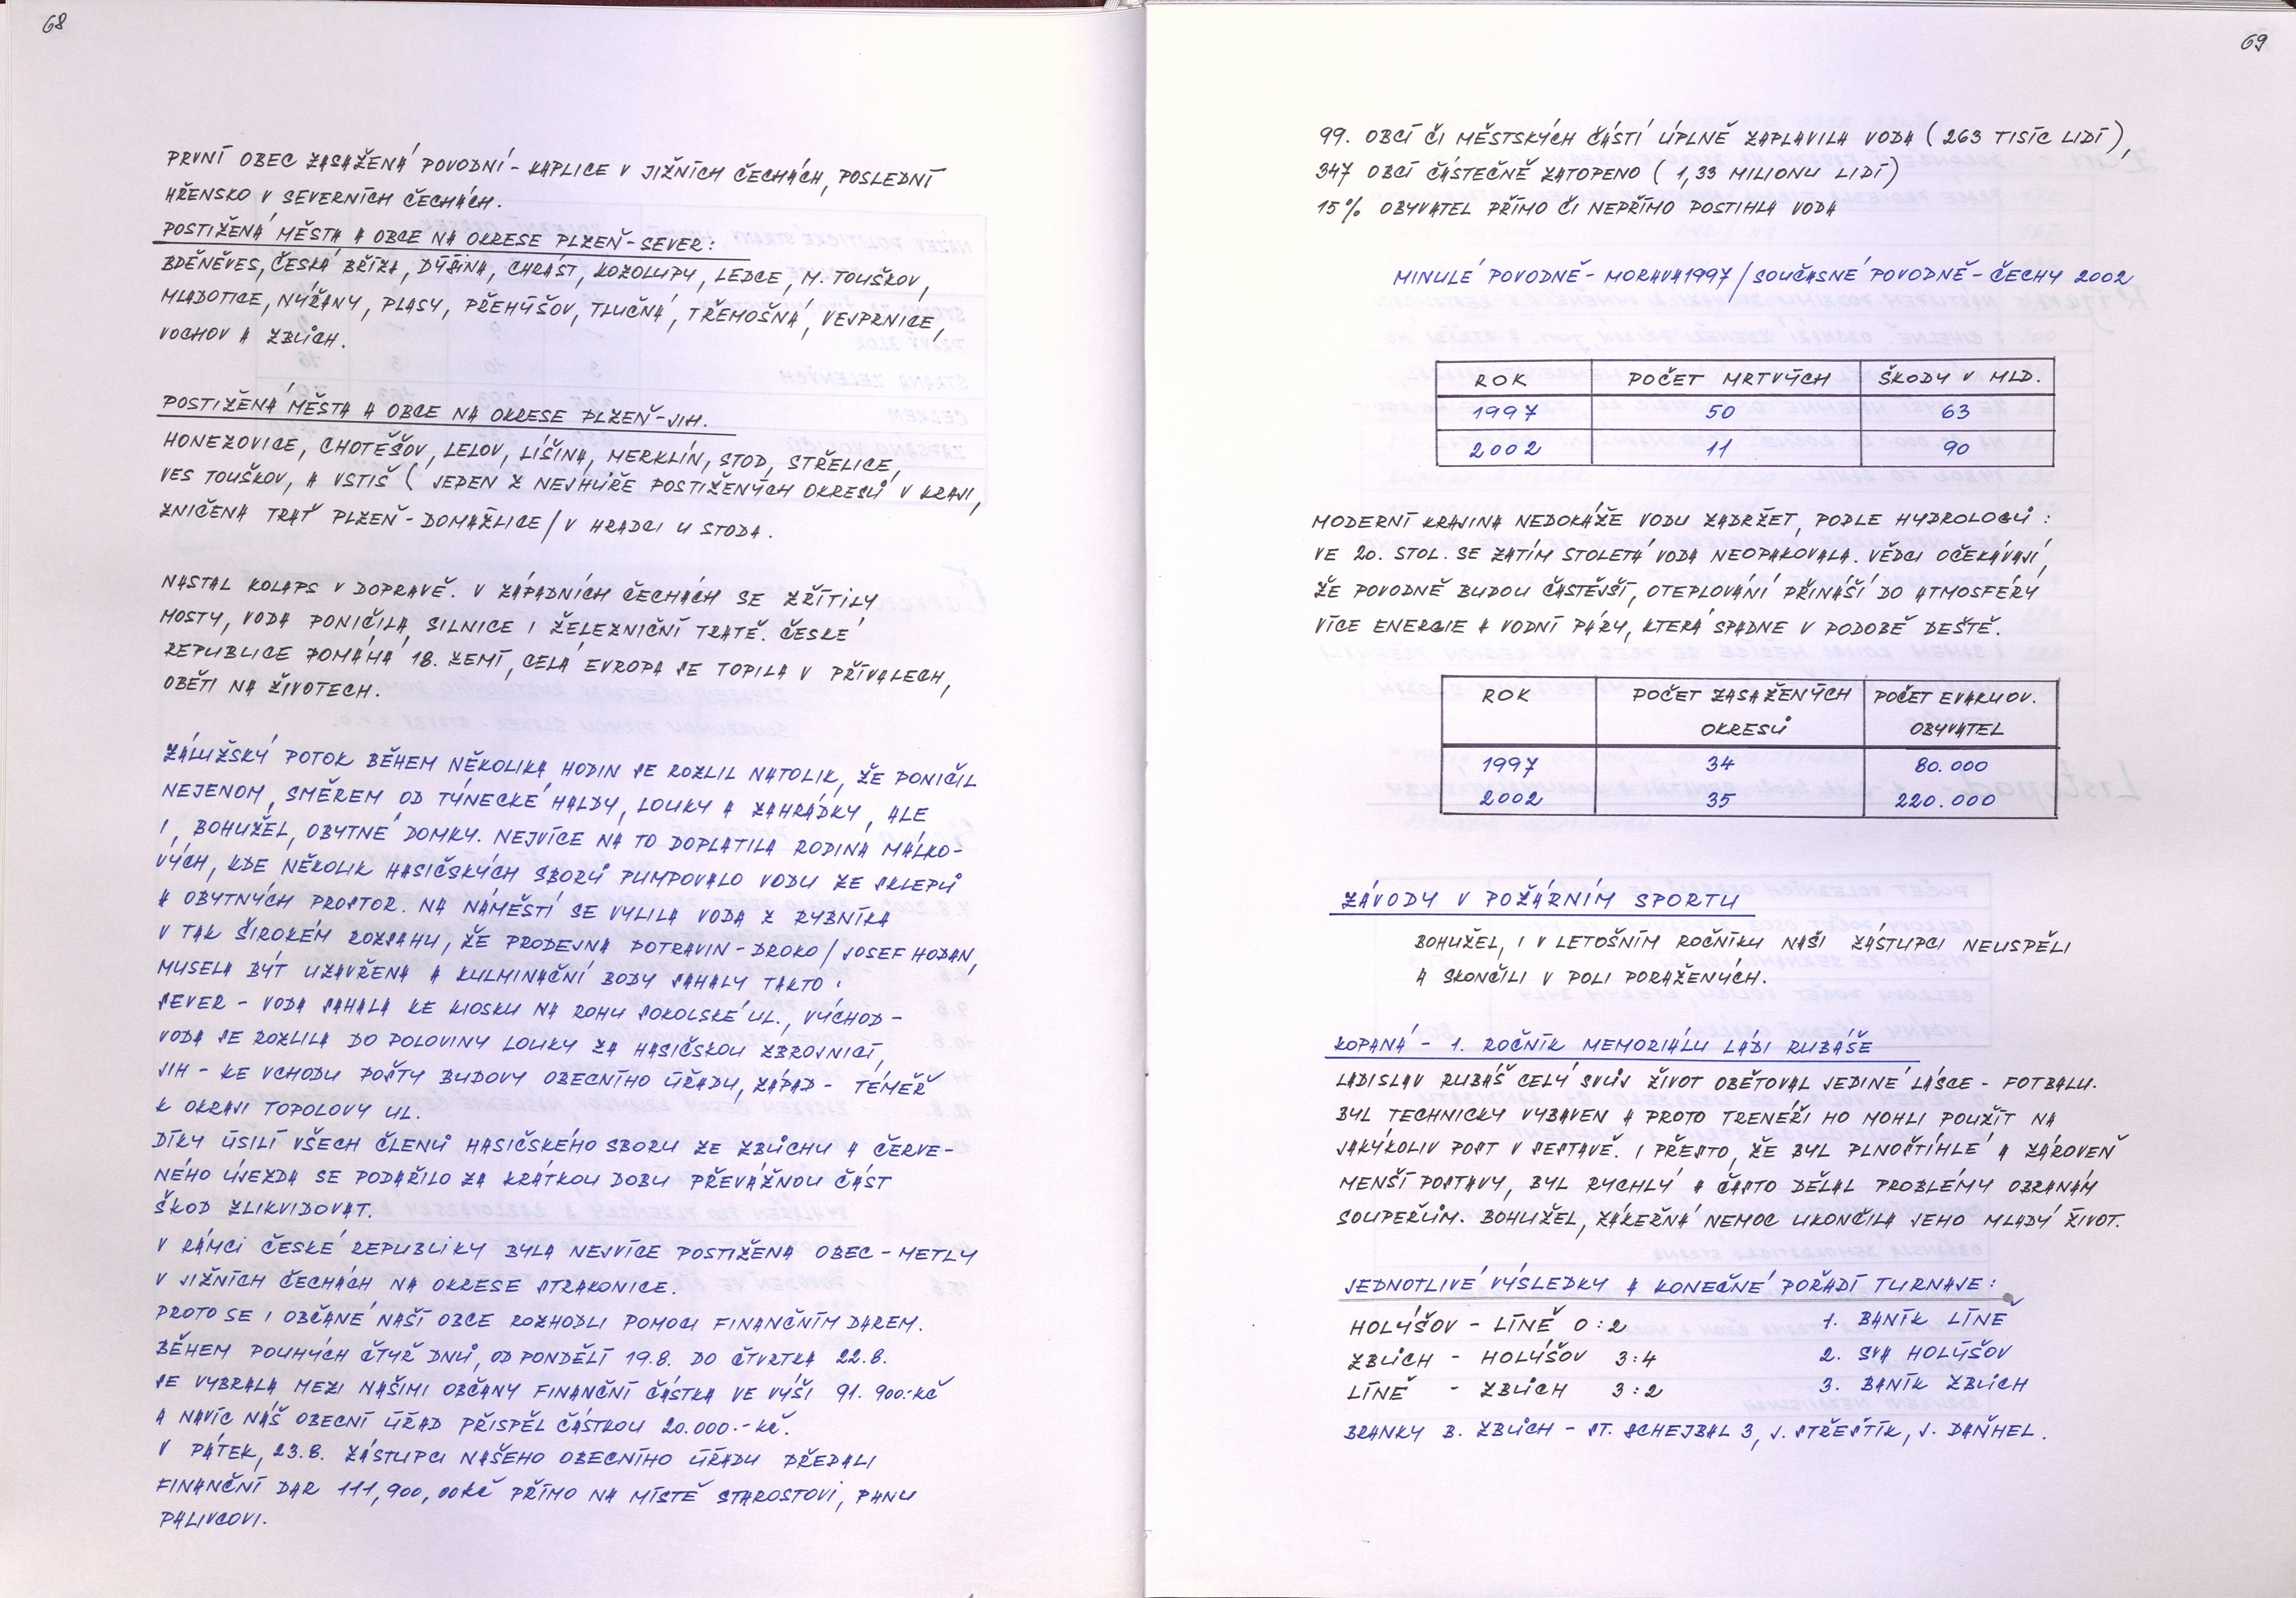 68
PRVNÍ OBEC ZASAŽENÁ POVODNÍ - KAPLICE V JIŽNÍCH ČECHÁCH, POSLEDNÍ
HŘENSKO V SEVERNÍCH ČECHÁCH.
POSTIŽENÁ MĚSTA A OBCE NA OKRESE PLZEŇ-SEVER:
BDĚNĚVES, ČESKÁ BŘÍZA, DÝŠINA, CHRÁST, KOZOLUPY, LEDCE, M. TOUŠKOV,
MLADOTICE, NÝŘANY, PLASY, PŘEHÝŠOV, TLUČNÁ, TŘEMOŠNÁ, VEJPRNICE,
VOCHOV A ZBŮCH.
POSTIŽENÁ MĚSTA A OBCE NA OKRESE PLZEŇ-JIH.
HONEZOVICE, CHOTĚŠOV, LELOV, LÍŠINA, MERKLÍN, STOD, STŘELICE,
VES TOUŠKOV, A VSTIŠ ( JEDEN Z NEJHŮŘE POSTIŽENÝCH OKRESŮ V KRAJI,
ZNIČENA TRAŤ PLZEŇ - DOMAŽLICE / V HRADCI U STODA.
NASTAL KOLAPS V DOPRAVĚ. V ZÁPADNÍCH ČECHÁCH SE ZŘÍTILY
MOSTY, VODA PONIČILA SILNICE I ŽELEZNIČNÍ TRATĚ. ČESKÉ
REPUBLICE POMÁHÁ 18. ZEMÍ, CELÁ EVROPA SE TOPILA V PŘÍVALECH,
OBĚTI NA ŽIVOTECH.
ZÁLUŽSKÝ POTOK BĚHEM NĚKOLIKA HODIN SE ROZLIL NATOLIK, ŽE PONIČIL
NEJENOM, SMĚREM OD TÝNECKÉ HALDY, LOUKY A ZAHRÁDKY, ALE
I, BOHUŽEL, OBYTNÉ DOMKY. NEJVÍCE NA TO DOPLATILA RODINA MÁLKO-
VÝCH, KDE NĚKOLIK HASIČSKÝCH SBORŮ PUMPOVALO VODU ZE SKLEPŮ
A OBYTNÝCH PROSTOR. NA NÁMĚSTÍ SE VYLILA VODA Z RYBNÍKA
V TAK ŠIROKÉM ROZSAHU, ŽE PRODEJNA POTRAVIN - DROKO / JOSEF HODAN,
MUSELA BÝT UZAVŘENA A KULMINAČNÍ BODY SAHALY TAKTO:
SEVER - VODA SAHALA KE KIOSKU NA ROHU SOKOLSKÉ UL., VÝCHOD -
VODA SE ROZLILA DO POLOVINY LOUKY ZA HASIČSKOU ZBROJNICÍ,
JIH - KE VCHODU POŠTY BUDOVY OBECNÍHO ÚŘADU, ZÁPAD - TÉMĚŘ
K OKRAJI TOPOLOVY UL.
DÍKY ÚSILÍ VŠECH ČLENŮ HASIČSKÉHO SBORU ZE ZBŮCHU A ČERVE-
NÉHO ÚJEZDA SE PODAŘILO ZA KRÁTKOU DOBU PŘEVÁŽNOU ČÁST
ŠKOD ZLIKVIDOVAT.
V RÁMCI ČESKÉ REPUBLIKY BYLA NEJVÍCE POSTIŽENA OBEC - METLY
V JIŽNÍCH ČECHÁCH NA OKRESE STRAKONICE.
PROTO SE I OBČANÉ NAŠÍ OBCE ROZHODLI POMOCI FINANČNÍM DAREM.
BĚHEM POUHÝCH ČTYŘ DNŮ, OD PONDĚLÍ 19.8. DO ČTVRTKA 22.8.
SE VYBRALA MEZI NAŠIMI OBČANY FINANČNÍ ČÁSTKA VE VÝŠI 91.900.-KČ
A NAVÍC NÁŠ OBECNÍ ÚŘAD PŘISPĚL ČÁSTKOU 20.000.- KČ.
V PÁTEK, 23.8. ZÁSTUPCI NAŠEHO OBECNÍHO ÚŘADU PŘEDALI
FINANČNÍ DAR 111,900,00KČ PŘÍMO NA MÍSTĚ STAROSTOVI, PANU
PALIVCOVI.
69
99. OBCÍ ČI MĚSTSKÝCH ČÁSTÍ ÚPLNĚ ZAPLAVILA VODA ( 263 TISÍC LIDÍ ),
347 OBCÍ ČÁSTEČNĚ ZATOPENO ( 1,33 MILIONU LIDÍ )
15% OBYVATEL PŘÍMO ČI NEPŘÍMO POSTIHLA VODA
MINULÉ POVODNĚ - MORAVA 1997 / SOUČASNÉ POVODNĚ - ČECHY 2002
ROK POČET MRTVÝCH ŠKODY V MLD.
1997 50 63
2002 11 90
MODERNÍ KRAJINA NEDOKÁŽE VODU ZADRŽET, PODLE HYDROLOGŮ :
VE 20. STOL. SE ZATÍM STOLETÁ VODA NEOPAKOVALA. VĚDCI OČEKÁVAJÍ,
ŽE POVODNĚ BUDOU ČASTĚJŠÍ, OTEPLOVÁNÍ PŘINÁŠÍ DO ATMOSFÉRY
VÍCE ENERGIE A VODNÍ PÁRY, KTERÁ SPADNE V PODOBĚ DEŠTĚ.
ROK POČET ZASAŽENÝCH POČET EVAKUOV.
OKRESŮ OBYVATEL
1997 34 80.000
2002 35 220.000
ZÁVODY V POŽÁRNÍM SPORTU
BOHUŽEL, I V LETOŠNÍM ROČNÍKU NAŠI ZÁSTUPCI NEUSPĚLI
A SKONČILI V POLI PORAŽENÝCH.
KOPANÁ - 1. ROČNÍK MEMORIÁLU LÁDI RUBÁŠE
LADISLAV RUBÁŠ CELÝ SVŮJ ŽIVOT OBĚTOVAL JEDINÉ LÁSCE - FOTBALU.
BYL TECHNICKY VYBAVEN A PROTO TRENÉŘI HO MOHLI POUŽÍT NA
JAKÝKOLIV POST V SESTAVĚ. I PŘESTO, ŽE BYL PLNOŠTÍHLÉ A ZÁROVEŇ
MENŠÍ POSTAVY, BYL RYCHLÝ A ČASTO DĚLAL PROBLÉMY OBRANÁM
SOUPEŘŮM. BOHUŽEL, ZÁKEŘNÁ NEMOC UKONČILA JEHO MLADÝ ŽIVOT.
JEDNOTLIVÉ VÝSLEDKY A KONEČNÉ POŘADÍ TURNAJE:
HOLÝŠOV - LÍNĚ 0:2 1. BANÍK LÍNĚ
ZBŮCH - HOLÝŠOV 3:4 2. SVA HOLÝŠOV
LÍNĚ - ZBŮCH 3:2 3. BANÍK ZBŮCH
BRANKY B. ZBŮCH - ST. SCHEJBAL 3, J. STŘEŠTÍK, J. DAŇHEL.